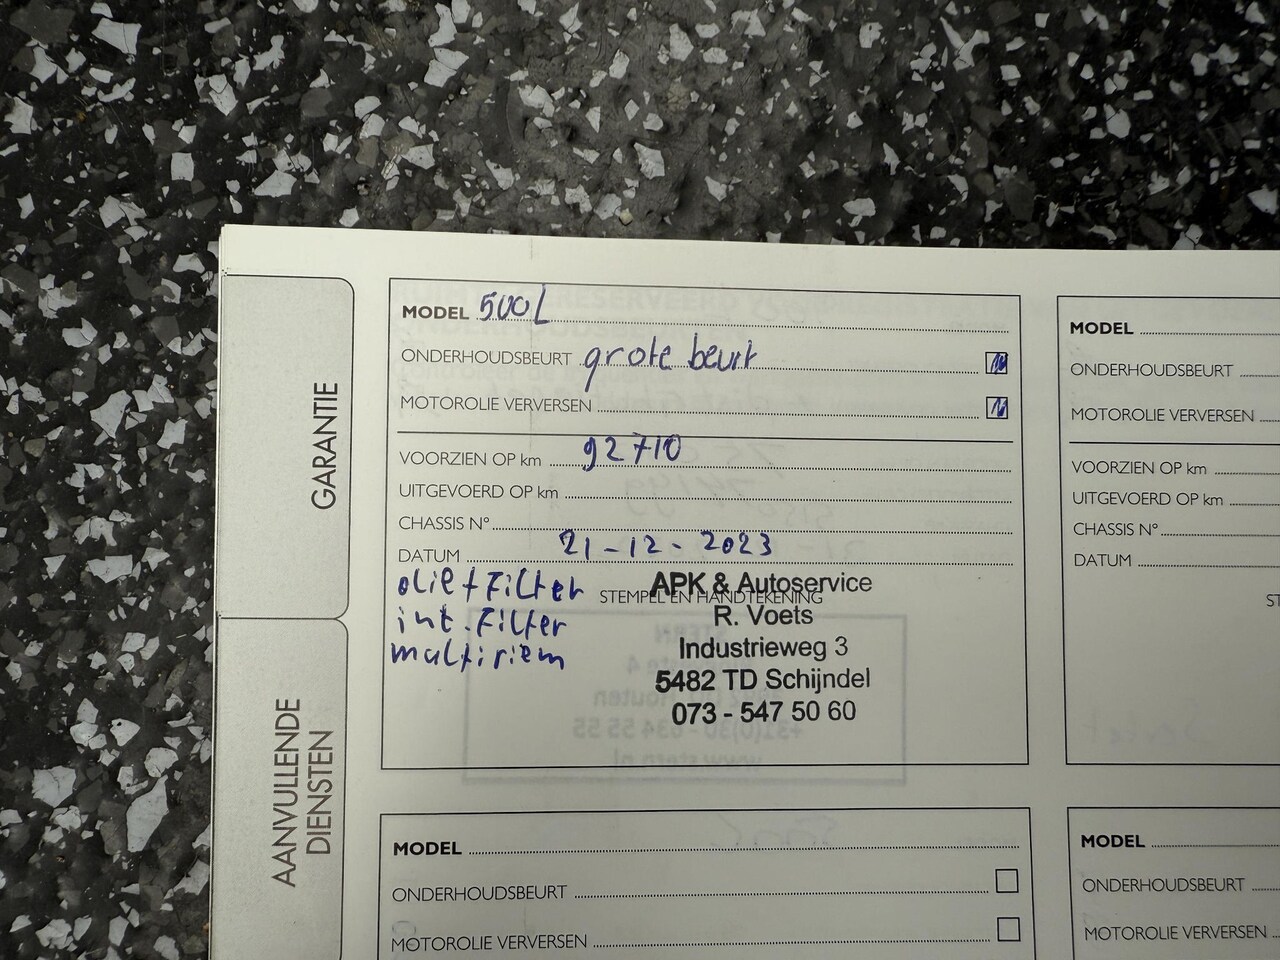 GARANTIE
AANVULLENDE
DIENSTEN
MODEL 500L
ONDERHOUDSBEURT grote beurt
MOTOROLIE VERVERSEN
VOORZIEN OP km 92710
UITGEVOERD OP km
CHASSIS N°
DATUM 21-12-2023
STEMPEL EN HANDTEKENING
olie + Filter
int. Filter
multiriem
APK & Autoservice
R. Voets
Industrieweg 3
5482 TD Schijndel
073 - 547 50 60
MODEL
ONDERHOUDSBEURT
MOTOROLIE VERVERSEN
VOORZIEN OP km
UITGEVOERD OP km
CHASSIS N°
DATUM
ST
MODEL
ONDERHOUDSBEURT
MOTOROLIE VERVERSEN
MODEL
ONDERHOUDSBEURT
MOTOROLIE VERVERSEN